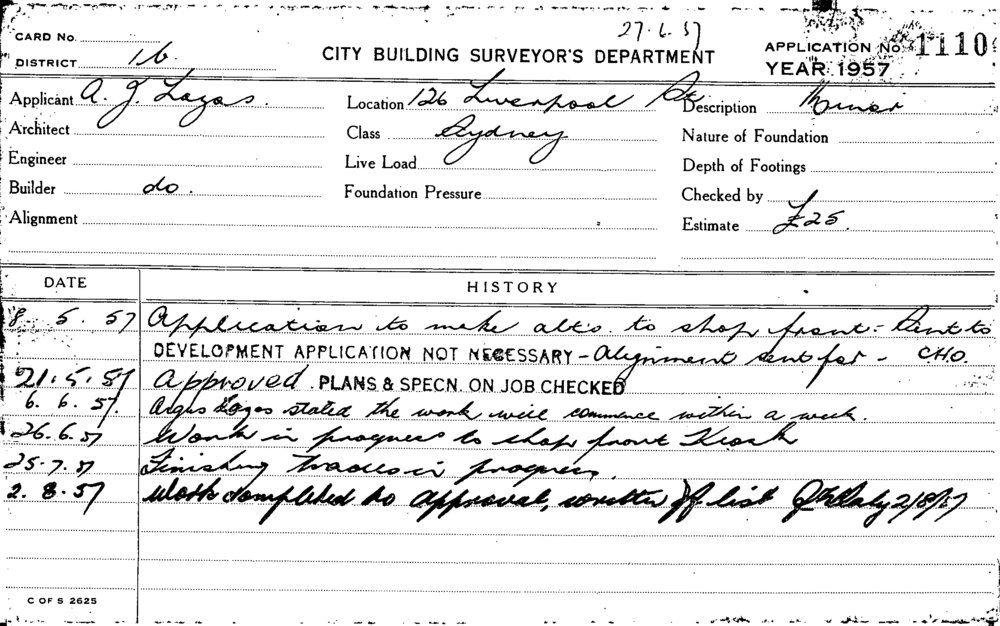 27.6.57
CARD No.
DISTRICT 16
CITY BUILDING SURVEYOR'S DEPARTMENT
APPLICATION No. 1110
YEAR 1957
Applicant A. J. Lazas. Location 126 Liverpool St Description Minor
Architect Class Sydney Nature of Foundation
Engineer Live Load Depth of Footings
Builder do. Foundation Pressure Checked by
Alignment Estimate £25.
DATE HISTORY
8.5.57 Application to make alts. to shop front - Sent to
DEVELOPMENT APPLICATION NOT NECESSARY - Alignment sent for - C.H.O.
21.5.57 Approved. PLANS & SPECN. ON JOB CHECKED
6.6.57. Lazos stated the work will commence within a week.
26.6.57 Work in progress to shop front Kiosk
25.7.57 Finishing trades in progress
2.8.57 Work completed to approval, written off list 2/8/57
C OF S 2625